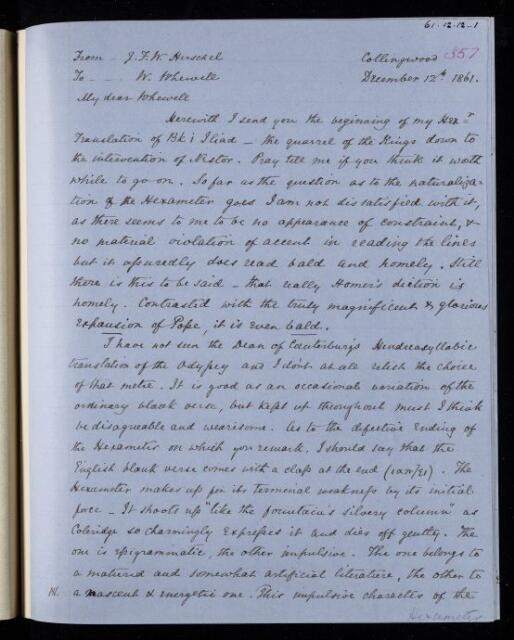 61-12-12-1
From - J.F.W. Herschel Collingwood 357
To - - W. Whewell December 12th 1861.
My dear Whewell
Herewith I send you the beginning of my Hexr
Translation of Bk i Iliad — the quarrel of the Kings down to
the intervention of Nestor. Pray tell me if you think it worth
while to go on. So far as the question as to the naturaliza-
tion of the Hexameter goes I am not dissatisfied with it,
as there seems to me to be no appearance of constraint, &
no material violation of accent in reading the lines
but it assuredly does read bald and homely. Still
there is this to be said — that really Homer's diction is
homely. Contrasted with the truly magnificent & glorious
expansion of Pope, it is even bald.
I have not seen the Dean of Canterbury's Hendecasyllabic
translation of the Odyssey and I don't at all relish the choice
of that metre. It is good as an occasional variation of the
ordinary blank verse, but kept up throughout must I think
be disagreeable and wearisome. As to the defective Ending of
the Hexameter on which you remark, I should say that the
English blank verse comes with a clap at the end. The
Hexameter makes up for its terminal weakness by its initial
force — It shoots up "like the fountain's silvery column" as
Coleridge so charmingly expresses it and dies off gently. The
one is epigrammatic, the other impulsive. The one belongs to
a matured and somewhat artificial literature, the other to
a nascent & energetic one. This impulsive character of the
Hexameter